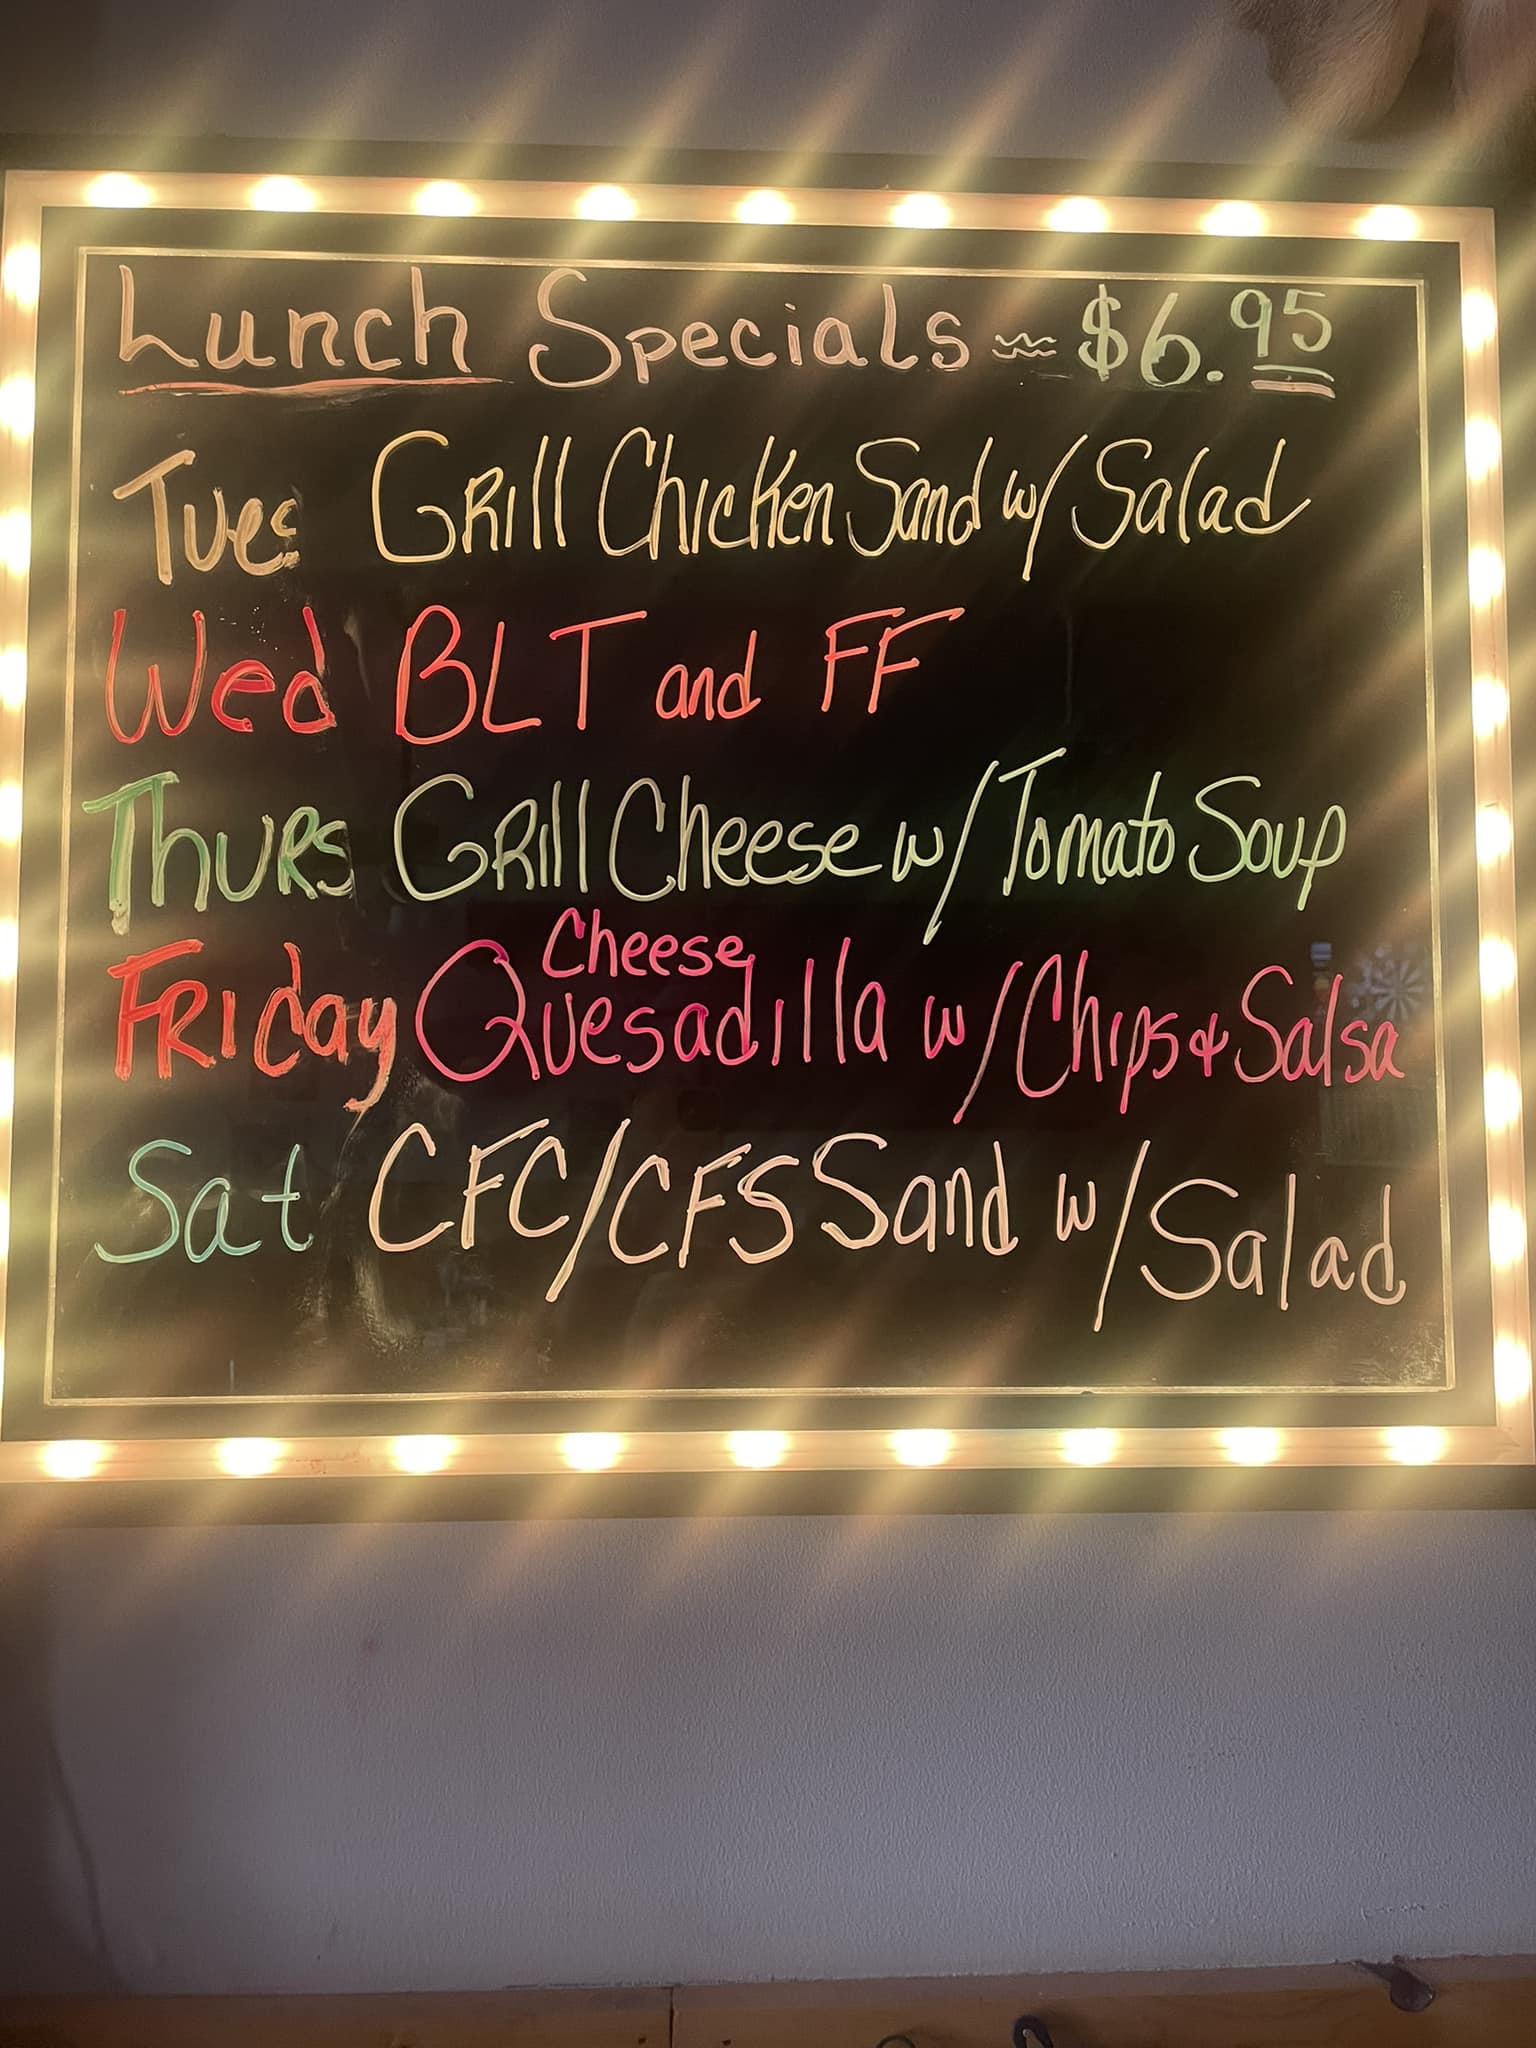 Lunch Specials ~ $6.95
Tues Grill Chicken Sand w/ Salad
Wed BLT and FF
Thurs Grill Cheese w/ Tomato Soup
Friday Cheese Quesadilla w/ Chips & Salsa
Sat CFC/CFS Sand w/ Salad